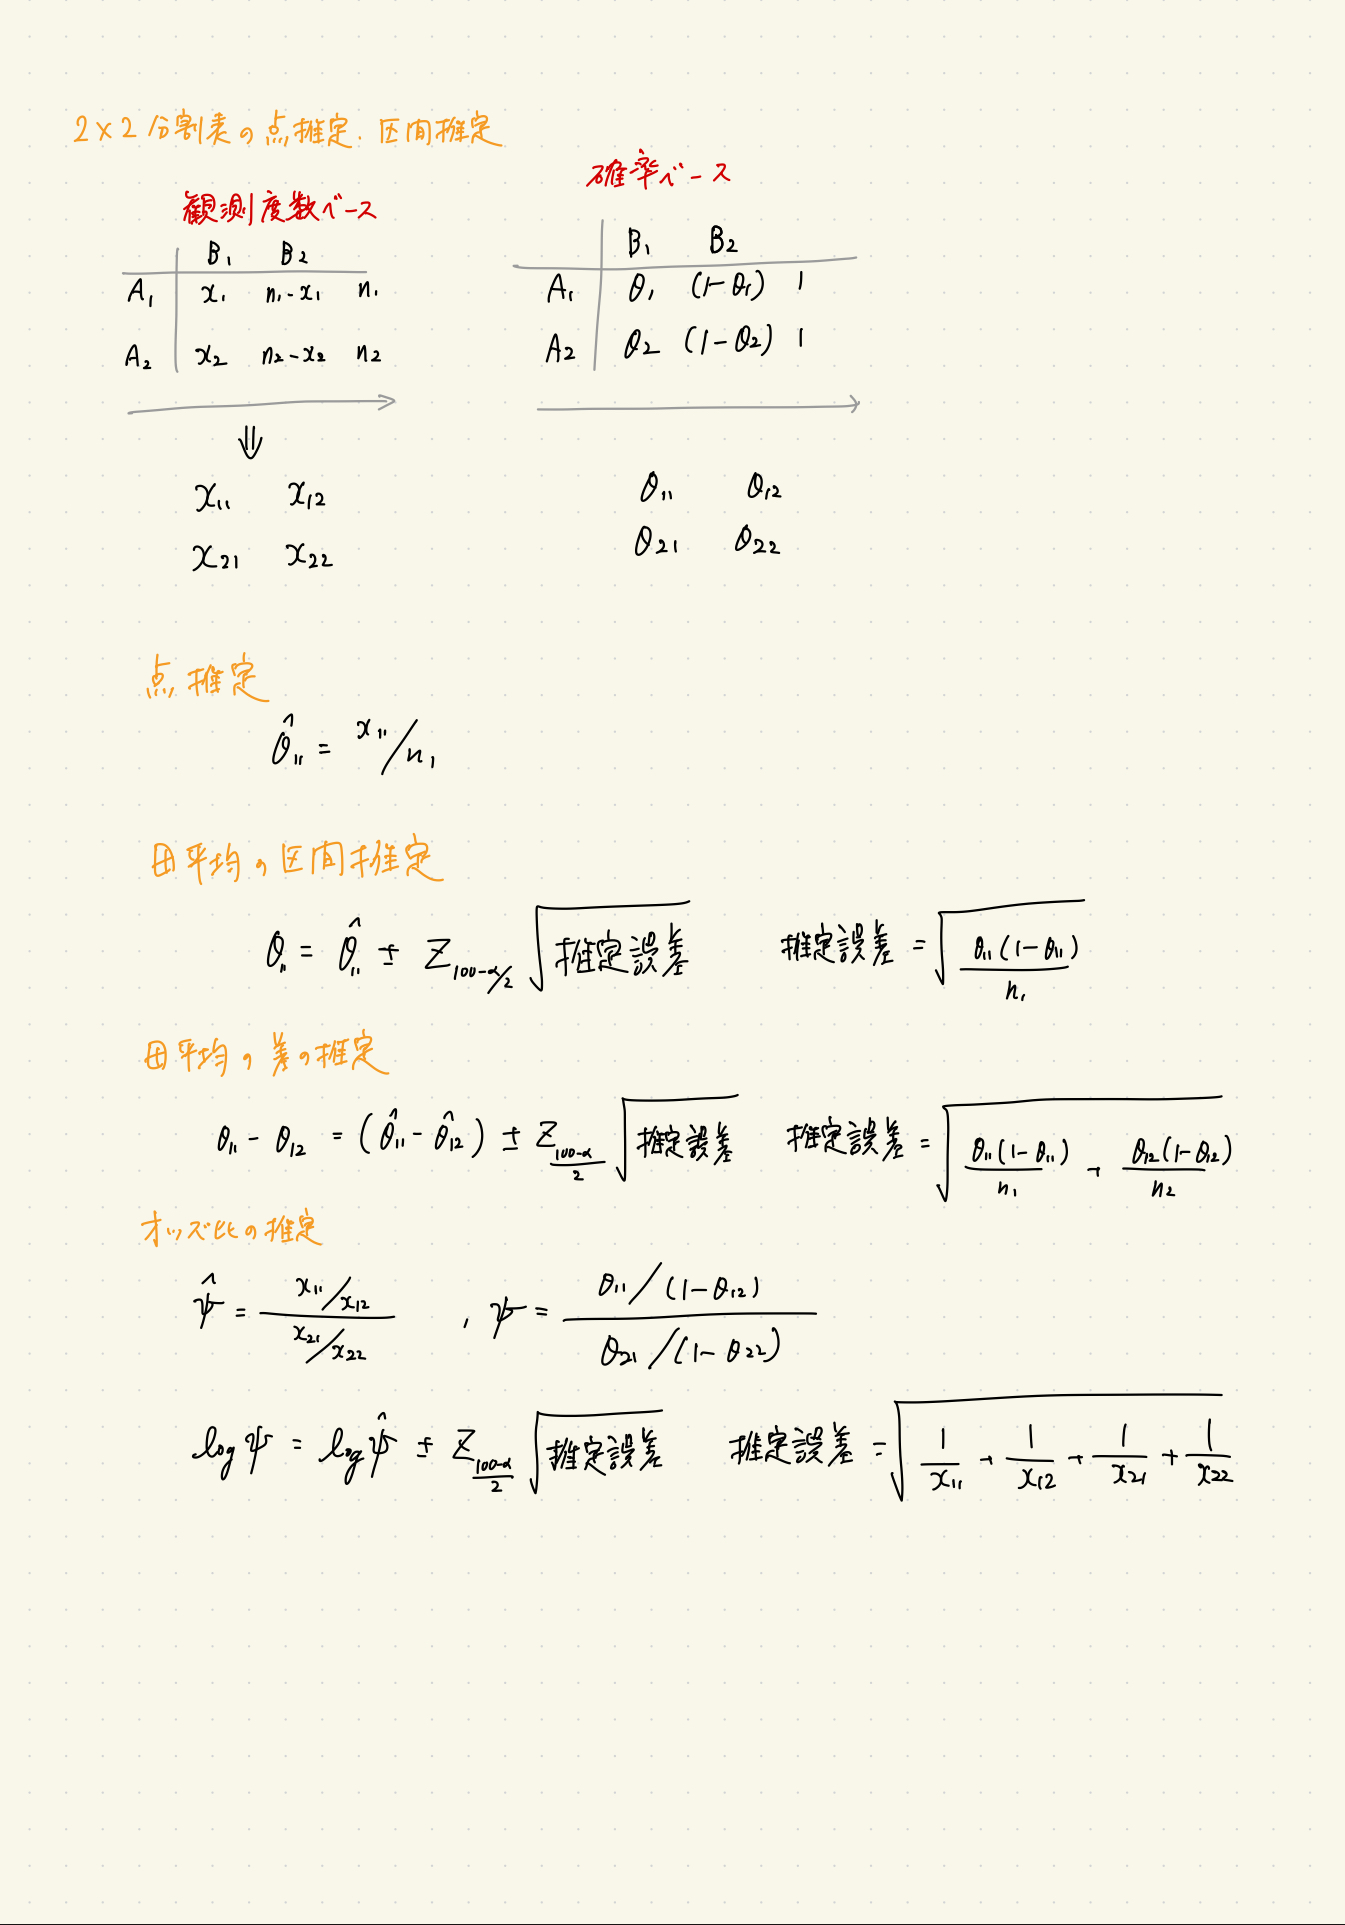 2×2分割表の点推定・区間推定
観測度数ベース
B₁ B₂
A₁ x₁ n₁-x₁ n₁
A₂ x₂ n₂-x₂ n₂
⇓
x₁₁ x₁₂
x₂₁ x₂₂
確率ベース
B₁ B₂
A₁ θ₁ (1-θ₁) 1
A₂ θ₂ (1-θ₂) 1
θ₁₁ θ₁₂
θ₂₁ θ₂₂
点推定
θ̂₁₁ = x₁₁/n₁
母平均の区間推定
θ₁₁ = θ̂₁₁ ± Z_{100-α/2} √推定誤差 推定誤差 = √(θ₁₁(1-θ₁₁)/n₁)
母平均の差の推定
θ₁₁ - θ₁₂ = (θ̂₁₁ - θ̂₁₂) ± Z_{(100-α)/2} √推定誤差 推定誤差 = √(θ₁₁(1-θ₁₁)/n₁ + θ₁₂(1-θ₁₂)/n₂)
オッズ比の推定
ψ̂ = (x₁₁/x₁₂)/(x₂₁/x₂₂) , ψ = (θ₁₁/(1-θ₁₂))/(θ₂₁/(1-θ₂₂))
log ψ = log ψ̂ ± Z_{(100-α)/2} √推定誤差 推定誤差 = √(1/x₁₁ + 1/x₁₂ + 1/x₂₁ + 1/x₂₂)